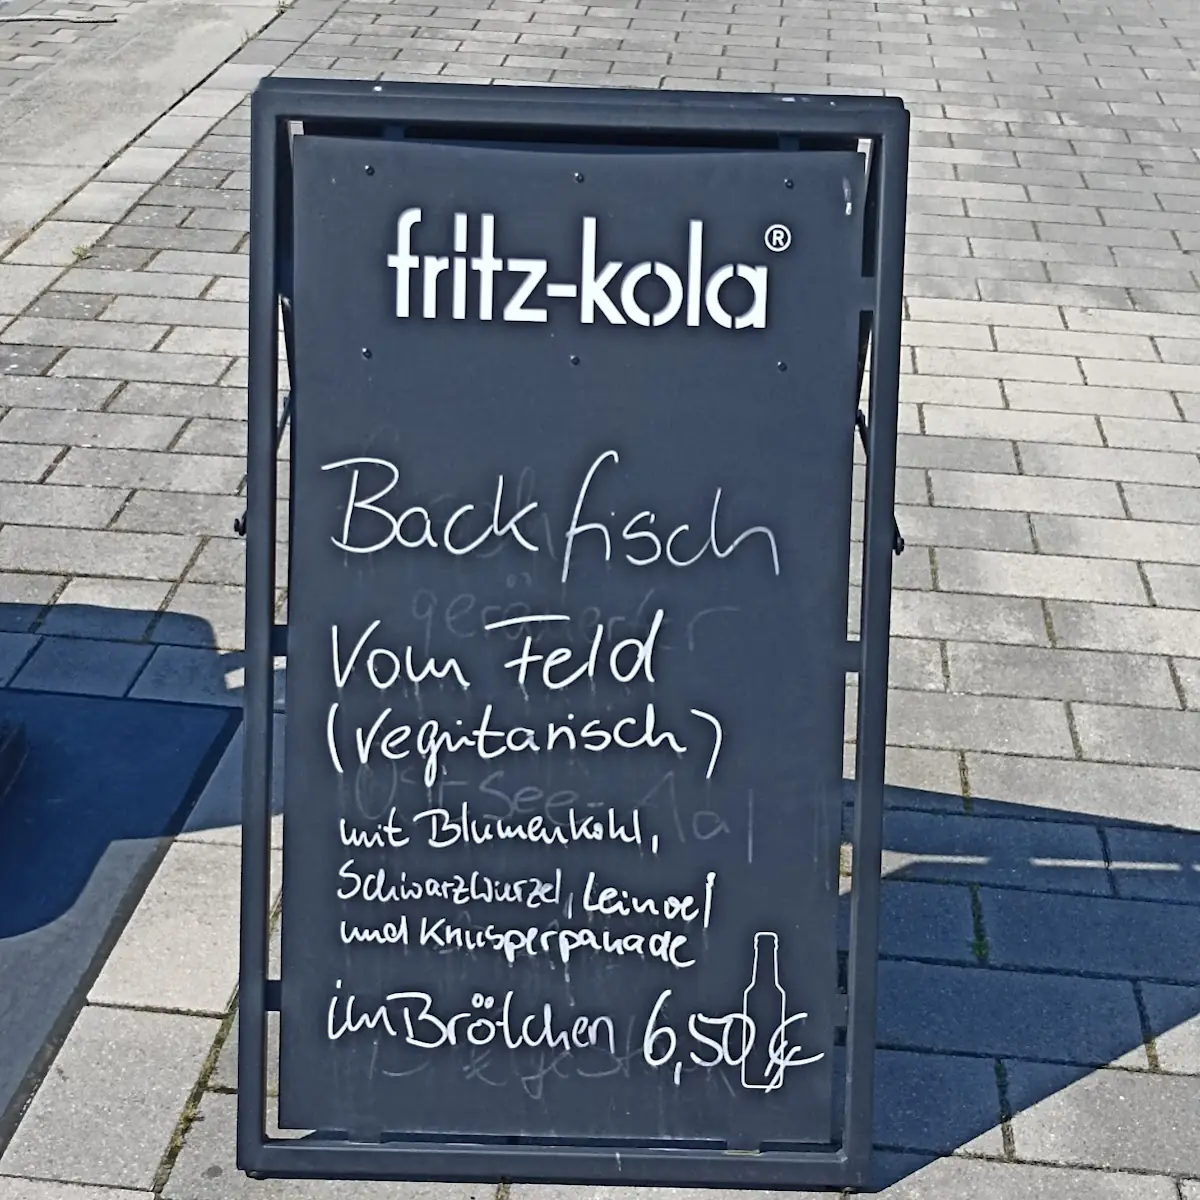 fritz-kola®
Backfisch
Vom Feld
(vegitarisch)
mit Blumenkohl,
Schwarzwurzel, Leinoel
und Knusperpanade
im Brötchen 6,50 €